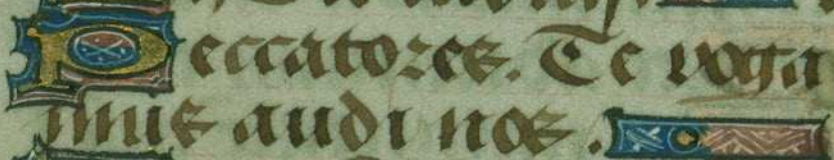 Peccatores. Te roga
mus audi nos.